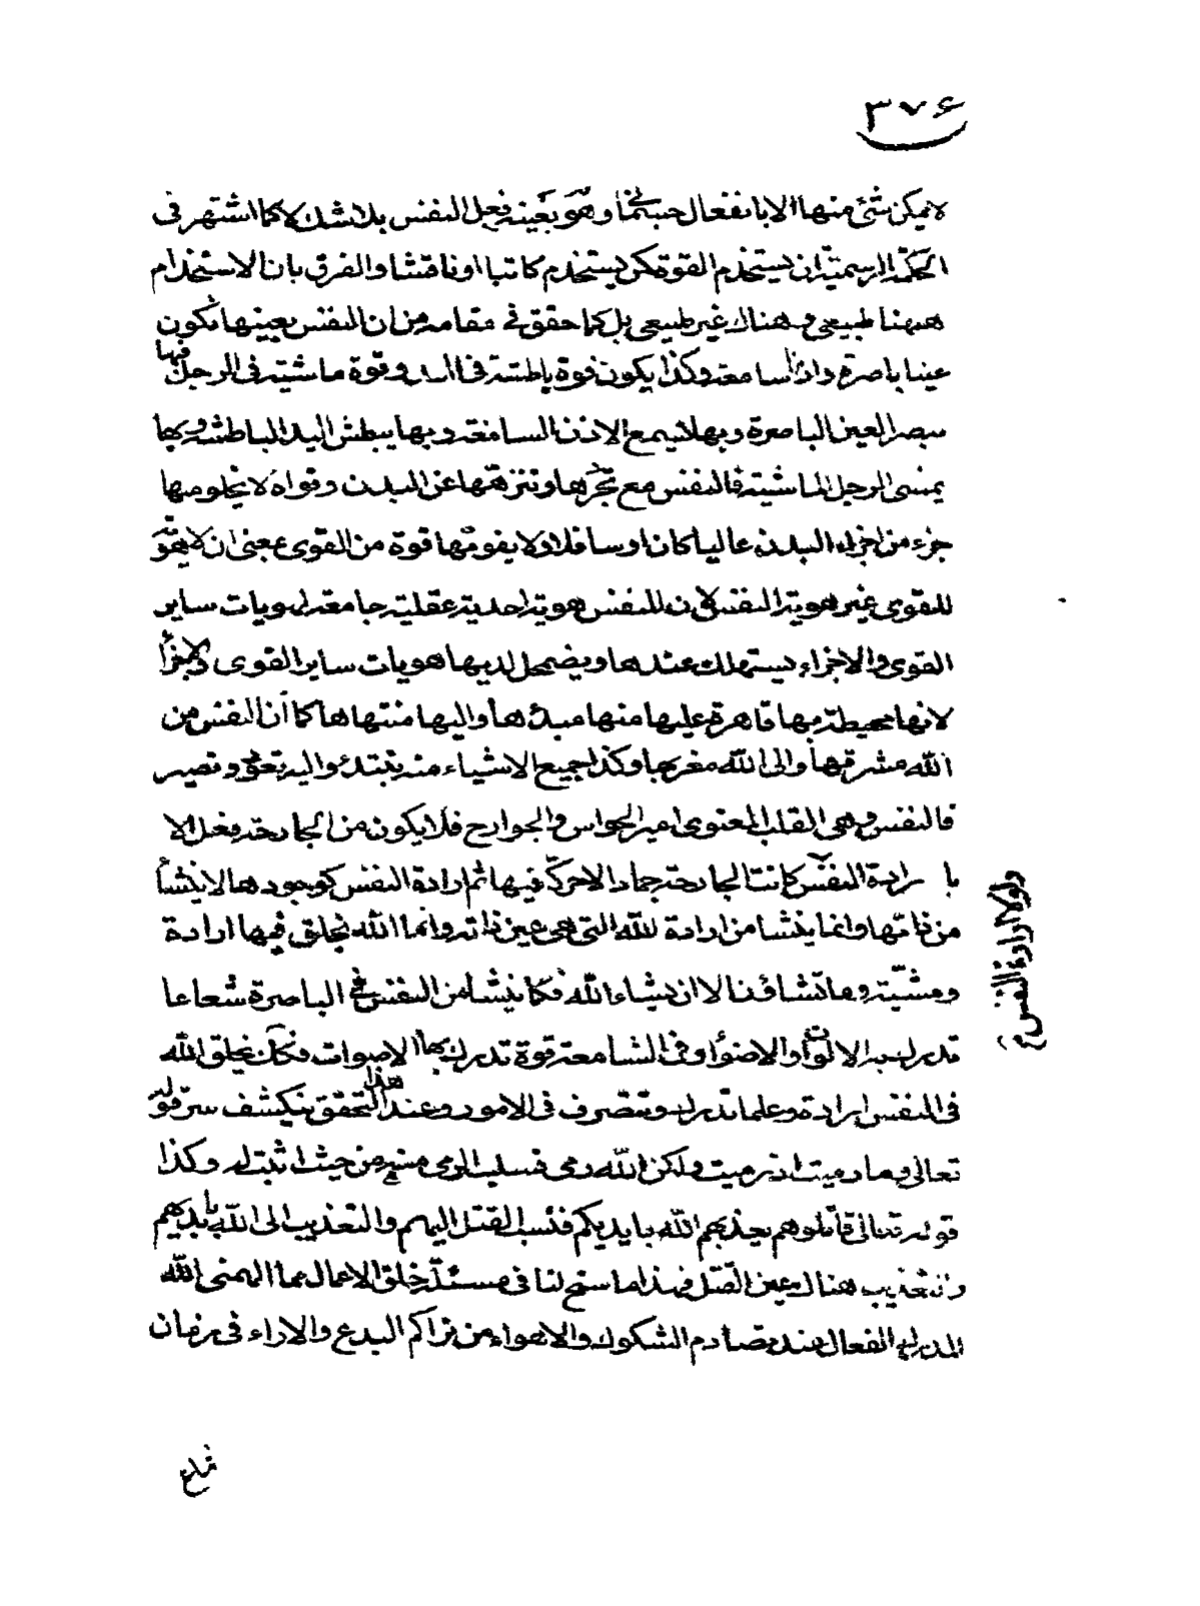 ٣٧۶
لا يمكن شئ منها الا بانفعال جسمانى وهو بعينه فعل النفس بلا شك لا كما اشتهر فى
الحكمة الرسمية ان يستخدم القوة كمن يستخدم كاتبا او نقاشا والفرق بان الاستخدام
ههنا طبيعى وهناك غير طبيعى بل كما حقق فى مقامه من ان النفس بعينها تكون
عينا باصرة واذنا سامعة وكذا يكون قوة باطشة فى اليد وقوة ماشية فى الرجل فبها
يبصر العين الباصرة وبها يسمع الاذن السامعة وبها يبطش اليد الباطشة وبها
يمشى الرجل الماشية فالنفس مع تجردها وتنزهها عن البدن وقواه لا يخلو منها
جزء من اجزاء البدن عاليا كان او سافلا ولا يفوتها قوة من القوى بمعنى ان لا هوية
للقوى غير هوية النفس لان للنفس هوية احدية عقلية جامعة لهويات ساير
القوى والاجزاء يستهلك عندها ويضمحل لديها هويات ساير القوى والاجزاء
لانها محيطة بها قاهرة عليها منها مبدئها واليها منتهاها كما ان النفس من
الله مشرقها والى الله مغربها وكذا جميع الاشياء منه يبتدئ واليه تعود وتصير
فالنفس وهى القلب المعنوى امير الحواس والجوارح فلا يكون من الجارحة فعل الا
بارادة النفس كانت الجارحة جمادا لا حركة فيها ثم ارادة النفس كوجودها لا ينشأ
من ذاتها وانما ينشا من ارادة الله التى هى عين ذاته وانما الله يخلق فيها ارادة
ومشية وما تشاؤن الا ان يشاء الله فكما ينشأ من النفس فى الباصرة شعاعا
تدرك به الالوان والاضواء وفى السامعة قوة تدرك بها الاصوات فكك يخلق الله
فى النفس ارادة وعلما تدرك وتتصرف فى الامور وعند هذا التحقق ينكشف سر قوله
تعالى وما رميت اذ رميت ولكن الله رمى فسلب الرمى منه من حيث اثبت له وكذا
قوله تعالى قاتلوهم يعذبهم الله بايديكم فنسب القتل اليهم والتعذيب الى الله بايديهم
والتعذيب هناك عين القتل فهذا ما سنح لنا فى مسئلة خلق الاعمال مما الهمنى الله
المدرك الفعال عند تصادم الشكوك والاهواء من تراكم البدع والاراء فى زمان
ولولا ارادة النفس